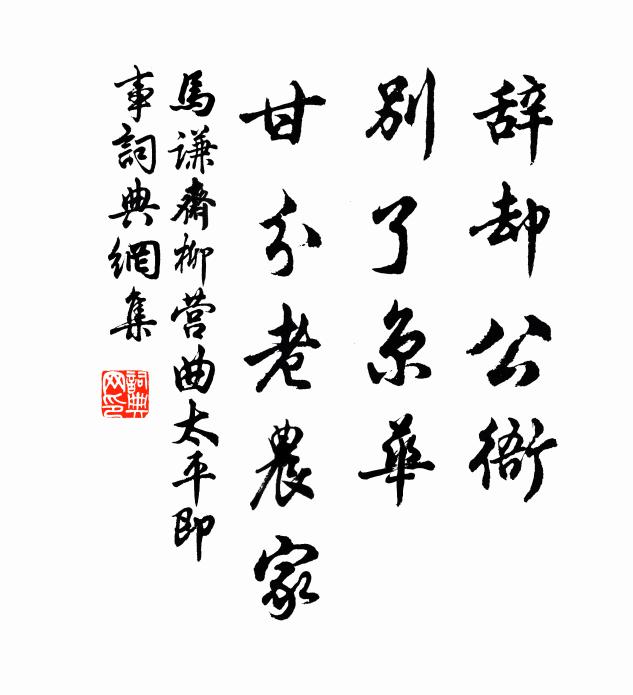 辞却公衙
别了京華
甘分老農家
馬谦齋柳营曲太平即
事詞典網集
詞典网印